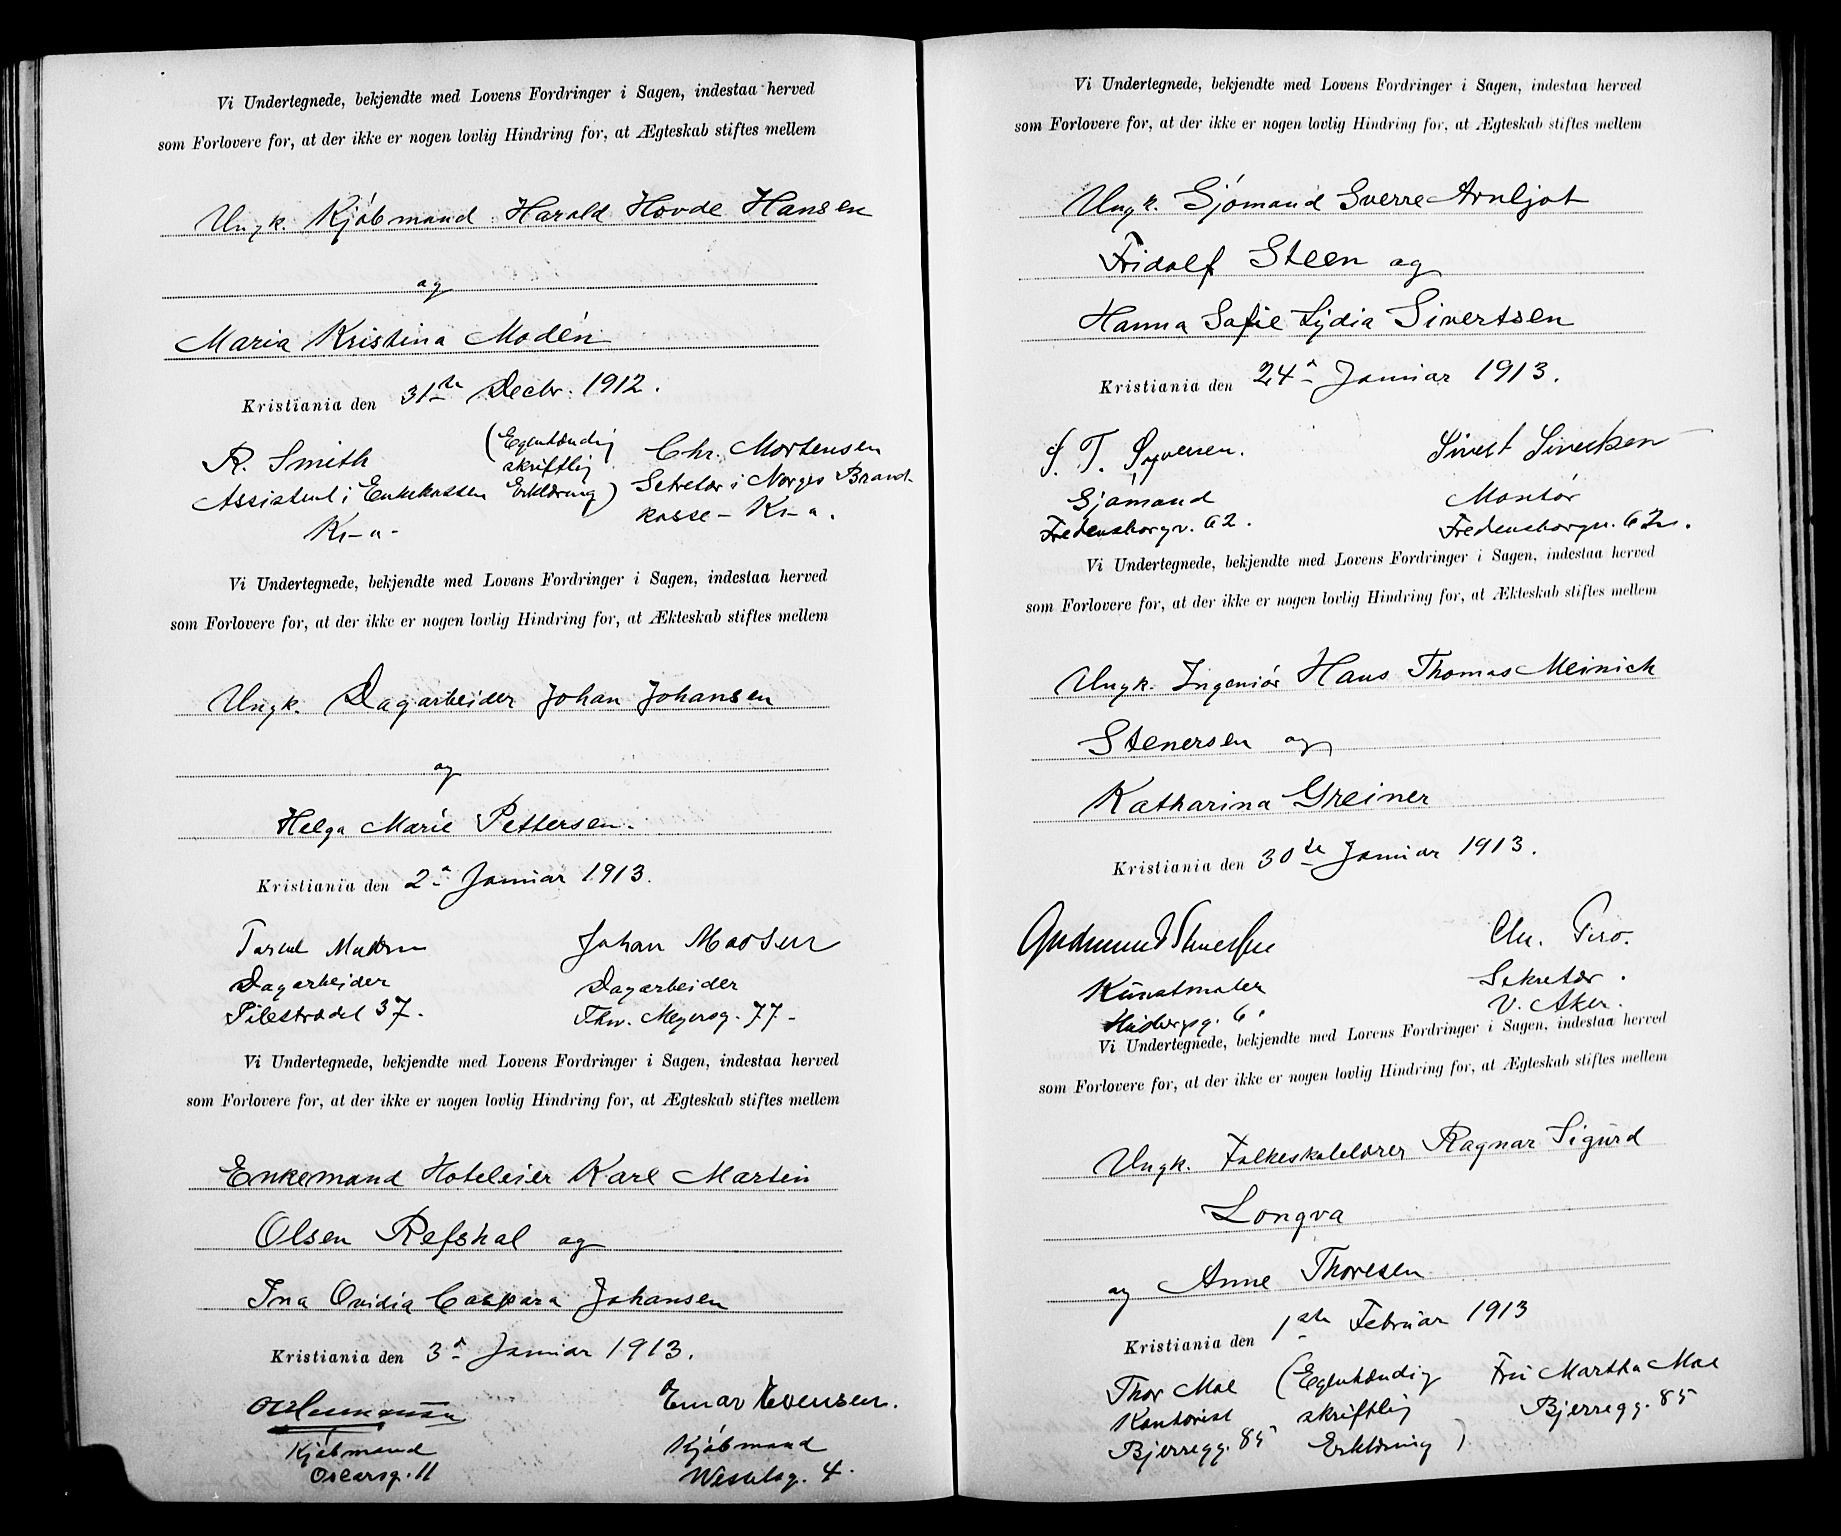 Vi Undertegnede, bekjendte med Lovens Fordringer i Sagen, indestaa herved
som Forlovere for, at der ikke er nogen lovlig Hindring for, at Ægteskab stiftes mellem
Ungk. Kjøbmand Harald Hovde Hansen
og
Maria Kristina Modén
Kristiania den 31te Decbr. 1912.
R. Smith (Egenhændig Chr. Mortensen
Assistent i Enkekassen skriftlig Sekretær i Norges Brand-
Kr-a- Erklæring) kasse - Kr-a.
Vi Undertegnede, bekjendte med Lovens Fordringer i Sagen, indestaa herved
som Forlovere for, at der ikke er nogen lovlig Hindring for, at Ækteskab stiftes mellem
Ungk. Dagarbeider Johan Johansen
og
Helga Marie Pettersen.
Kristiania den 2den Januar 1913.
Johan Madsen
Dagarbeider Dagarbeider
Pilestrædet 37. Thv. Meyersg. 77-
Vi Undertegnede, bekjendte med Lovens Fordringer i Sagen, indestaa herved
som Forlovere for, at der ikke er nogen lovlig Hindring for, at Ægteskab stiftes mellem
Enkemand Hoteleier Karl Martin
Olsen Refskal og
Ina Ovidia Caspara Johansen
Kristiania den 3d Januar 1913.
Einar Evensen.
Kjøbmand Kjøbmand
Oscarsg. 11 Wesselsg. 4.
Vi Undertegnede, bekjendte med Lovens Fordringer i Sagen, indestaa herved
som Forlovere for, at der ikke er nogen lovlig Hindring for, at Ægteskab stiftes mellem
Ungk. Sjømand Sverre Arnljot
Fridolf Steen og
Hanna Sofie Lydia Sivertsen
Kristiania den 24d Januar 1913.
S. T. Syversen. Sivert Sivertsen
Sjømand Montør
Fredensborgv. 62. Fredensborgv. 62
Vi Undertegnede, bekjendte med Lovens Fordringer i Sagen, indestaa herved
som Forlovere for, at der ikke er nogen lovlig Hindring for, at Ækteskab stiftes mellem
Ungk. Ingeniør Hans Thomas Meinich
Stenersen og
Katharina Greiner
Kristiania den 30te Januar 1913.
Gudmund Stenersen Chr.
Kunstmaler Sekretær.
6. V. Aker.
Vi Undertegnede, bekjendte med Lovens Fordringer i Sagen, indestaa herved
som Forlovere for, at der ikke er nogen lovlig Hindring for, at Ægteskab stiftes mellem
Ungk. Folkeskolelærer Ragnar Sigurd
Longva
og Anne Thoresen
Kristiania den 1ste Februar 1913
Thor Moe (Egenhændig Fru Martha Moe
Kontorist skriftlig Bjerregg. 85
Bjerregg. 85 Erklæring)